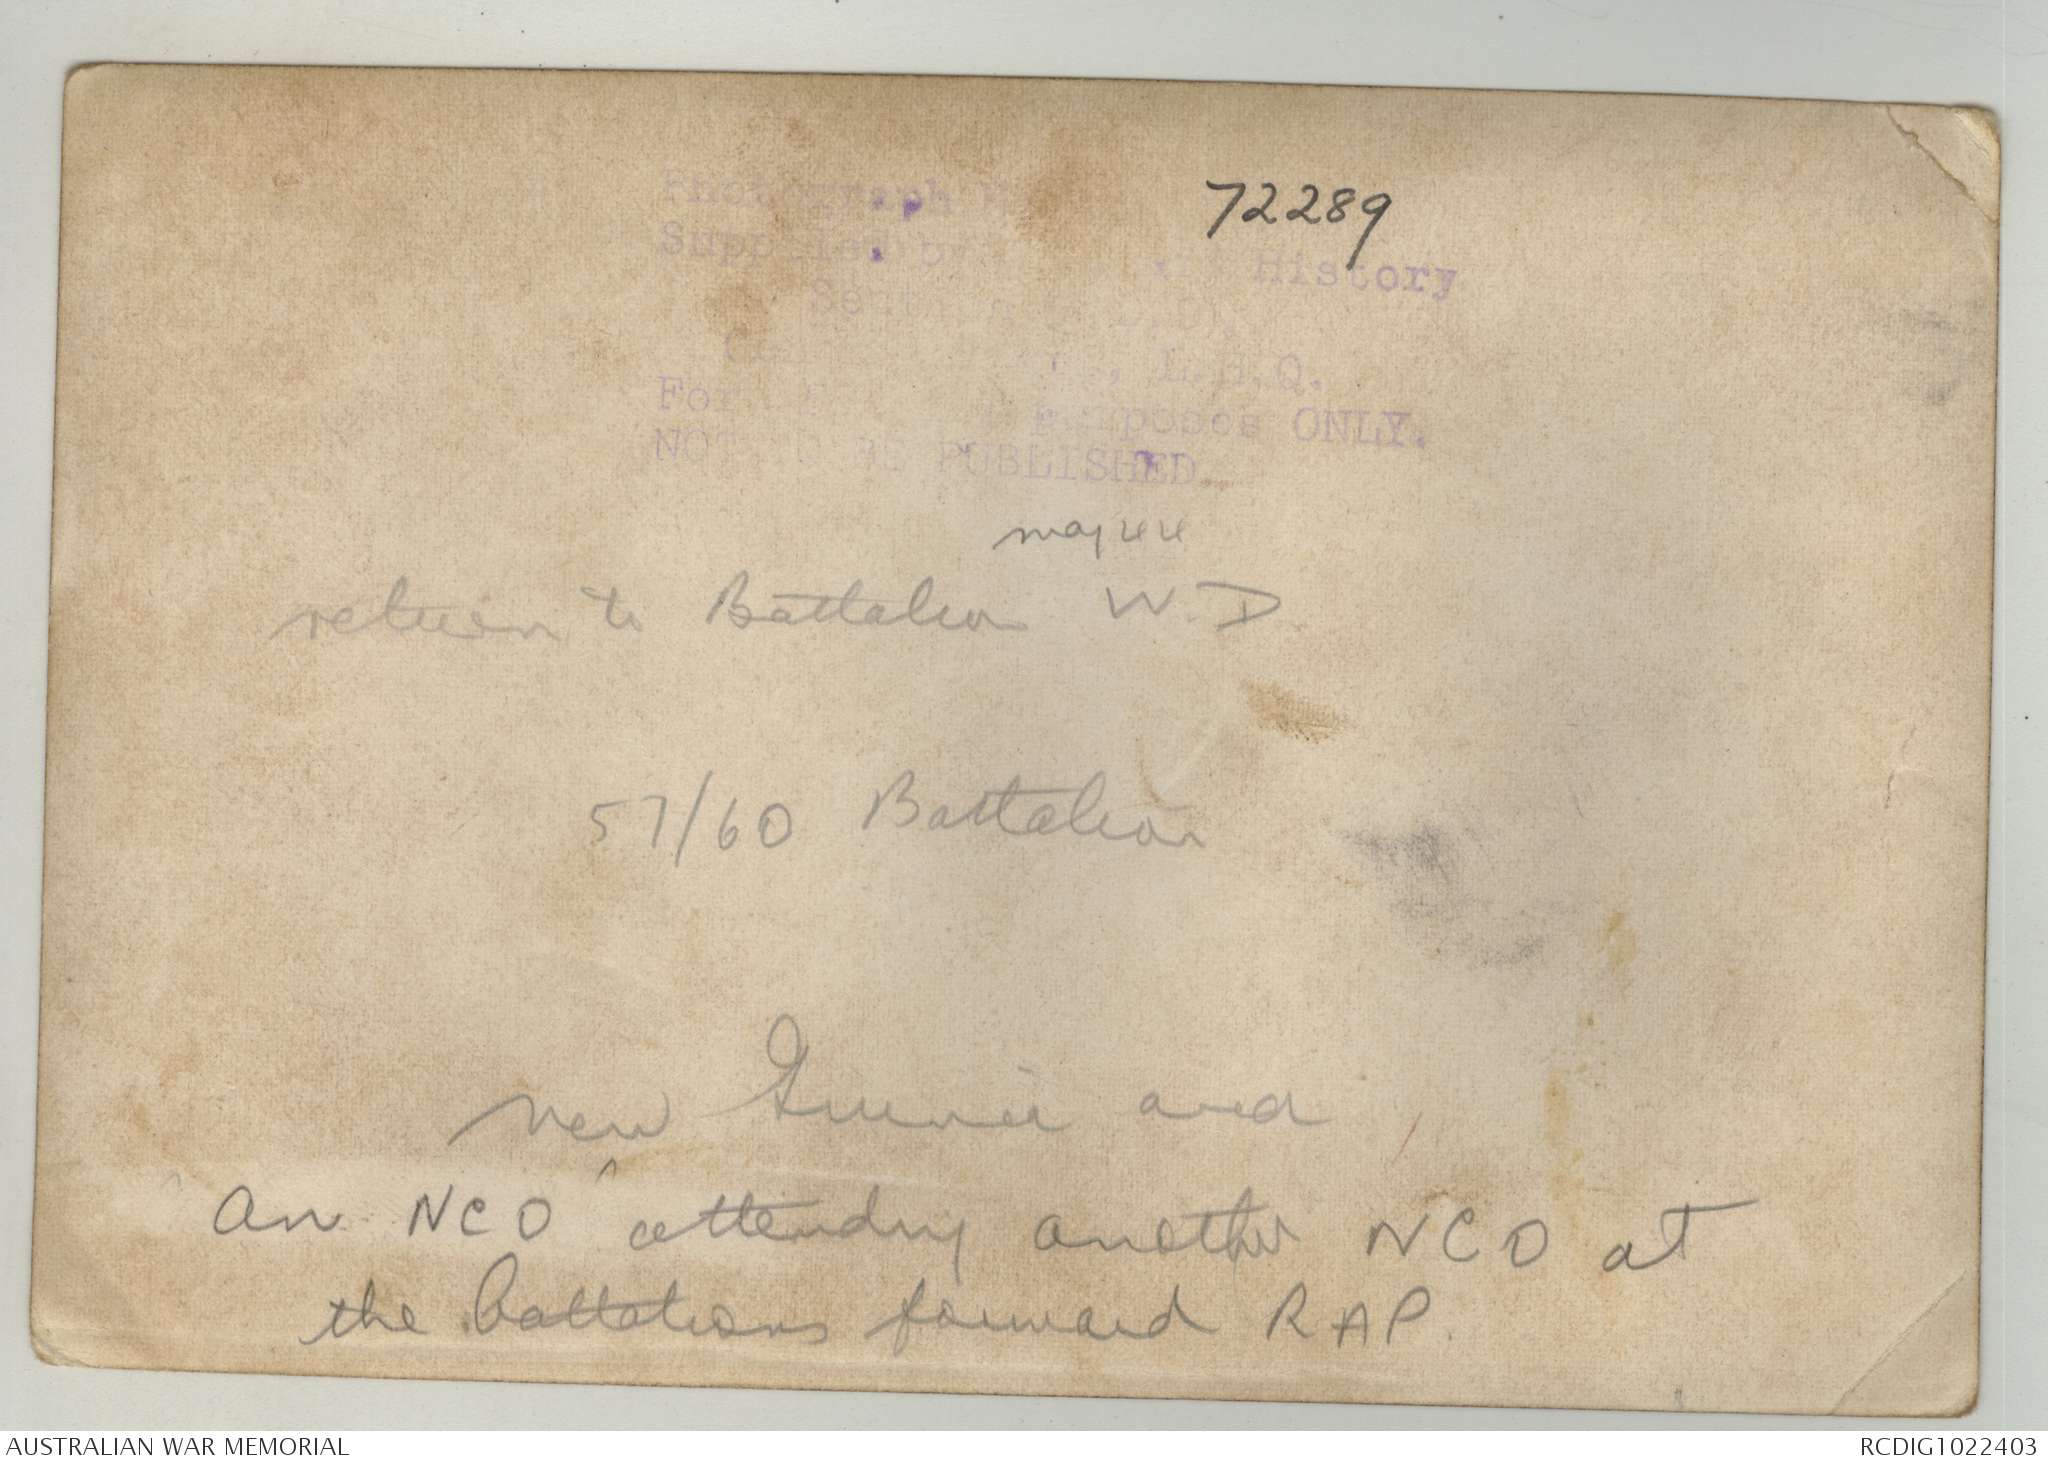 72289
Photograph
Supplied by History
Section
L.H.Q.
For purposes ONLY.
NOT TO BE PUBLISHED.
may 44
return to Battalion W.D
57/60 Battalion
New Guinea and
An NCO ^ attending another NCO at
the battalions forward RAP.
AUSTRALIAN WAR MEMORIAL
RCDIG1022403